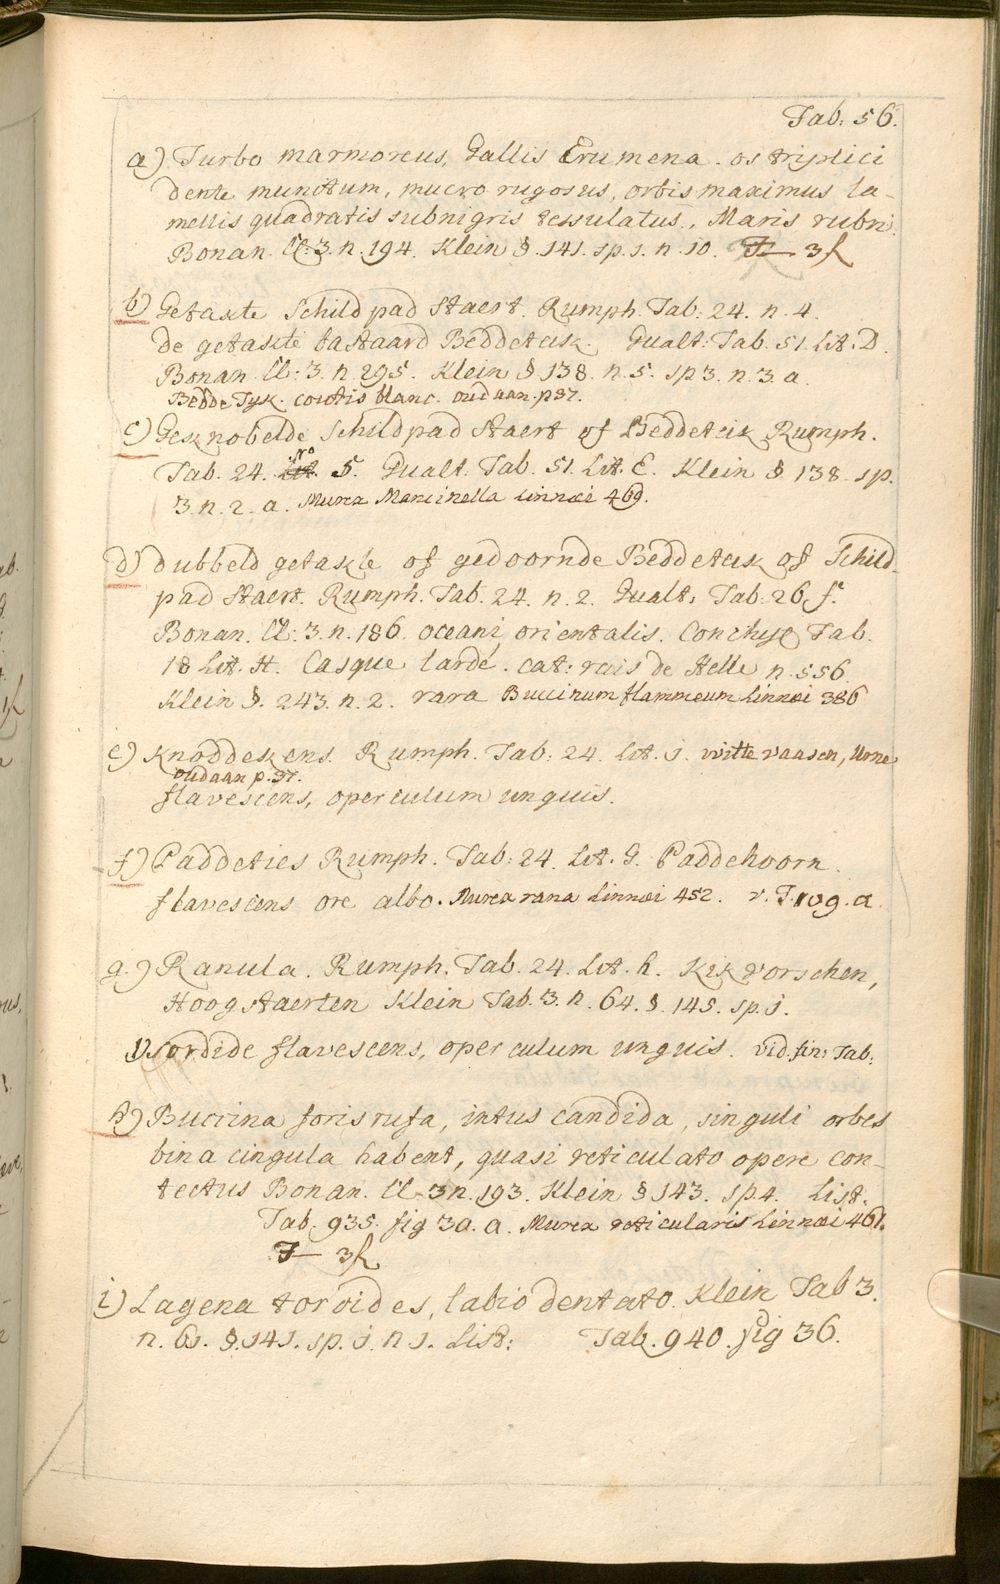 Tab: 56.
a) Turbo marmoreus, Gallis Crumena. os triplici
dente munitum, mucro rugosus, orbis maximus la-
mellis quadratis subnigris tessulatus., Maris rubri.
Bonan. Cl: 3. n. 194. Klein §. 141. sp. 1. n. 10. F— 3f
b) Getakte Schildpad Staert. Rumph. Tab: 24. n. 4.
de getakte bastaard Beddeteik. Gualt: Tab. 51. Lit. D.
Bonan. Cl: 3. n. 295. Klein § 138. n. 5. sp 3. n. 3. a.
Bedde Tyk. coutis blanc. oudaan. p 37.
c) Geknobelde Schildpad Staert of Beddeteik Rumph.
Tab. 24. No 5. Gualt. Tab. 51. Lit. E. Klein § 138. sp.
3. n. 2. a. Murex Mancinella Linnæi 469.
d) dubbeld getakte of gedoornde Beddeteik of Schild-
pad Staert. Rumph. Tab. 24. n. 2. Gualt, Tab: 26. f.
Bonan. Cl: 3. n. 186. oceani orientalis. Conchyl Tab.
18 Lit. H. Casque lardé. cat: rais de Helle n. 556.
Klein §. 243. n. 2. rara Buccinum flammeum Linnæi 386
e) Knoddekens. Rumph. Tab: 24. Lit. i. witte vaasen, Urne
oudaan p. 37.
flavescens, operculum unguis.
f) Paddeties Rumph. Tab: 24. Lit. G. Paddehoorn.
flavescens ore albo. Murex rana Linnæi 452. v. T. 109. a.
g.) Ranula. Rumph. Tab. 24. Lit. h. Kikvorschen,
Hoog staerten Klein Tab. 3. n. 64. §. 145. sp. i.
sordide flavescens, operculum unguis. vid. fin: Tab:
h) Buccina foris rufa, intus candida, singuli orbes
bina cingula habent, quasi reticulato opere con-
tectus Bonan. Cl 3 n. 193. Klein § 143. sp 4. List.
Tab. 935. fig 30. a. Murex reticularis Linnæi 461.
F— 3f
i) Lagena toroides, labio dentato. Klein Tab 3.
n. 61. §. 141. sp. i. n 1. List: Tab. 940. fig 36.